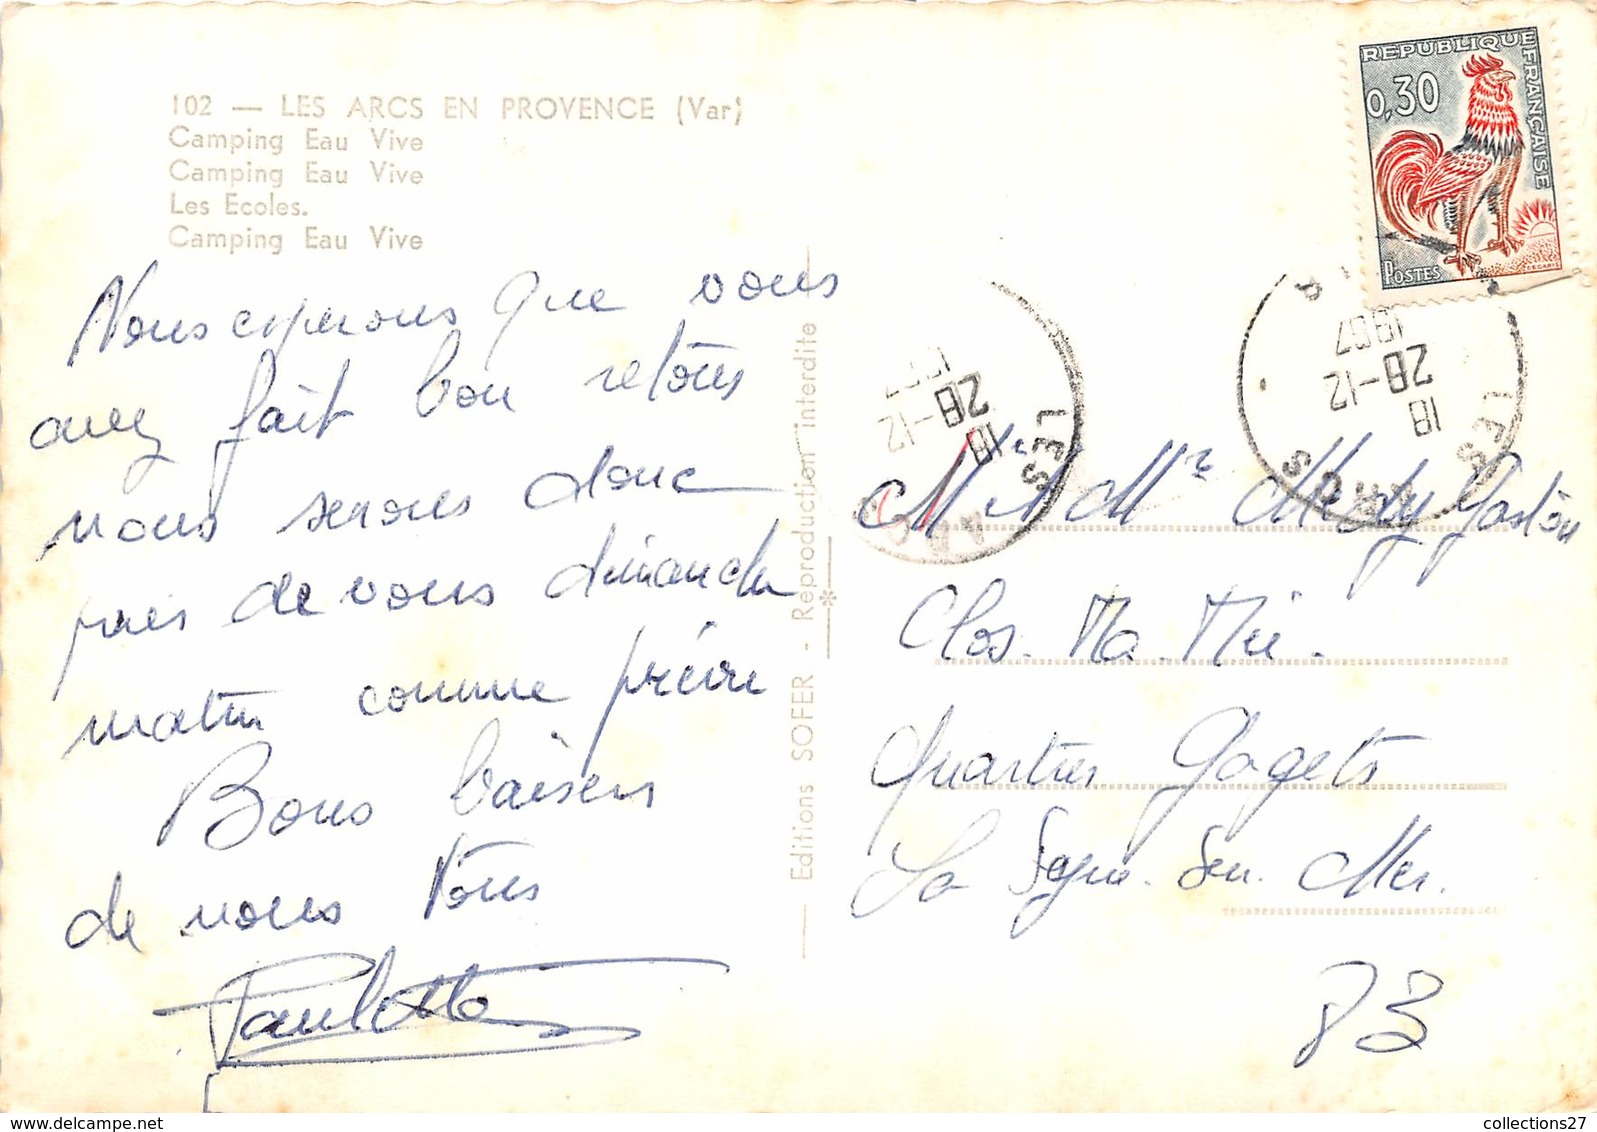 102 — LES ARCS EN PROVENCE (Var)
Camping Eau Vive
Camping Eau Vive
Les Ecoles.
Camping Eau Vive
Nous esperons que vous
avez fait bon retour
nous serons donc
près de vous dimanche
matin comme prévu
Bons baisers
de nous tous
Paulette
Editions SOFER - Reproduction interdite
REPUBLIQUE FRANÇAISE
0,30
POSTES
DECARIS
18
28-12
LES ARCS
18
28-12
1967
LES ARCS
Mr & Mme Gaston
Clos. Ma. Mie.
Quartier Gagets
La Seyne. Sur. Mer.
83
collections27